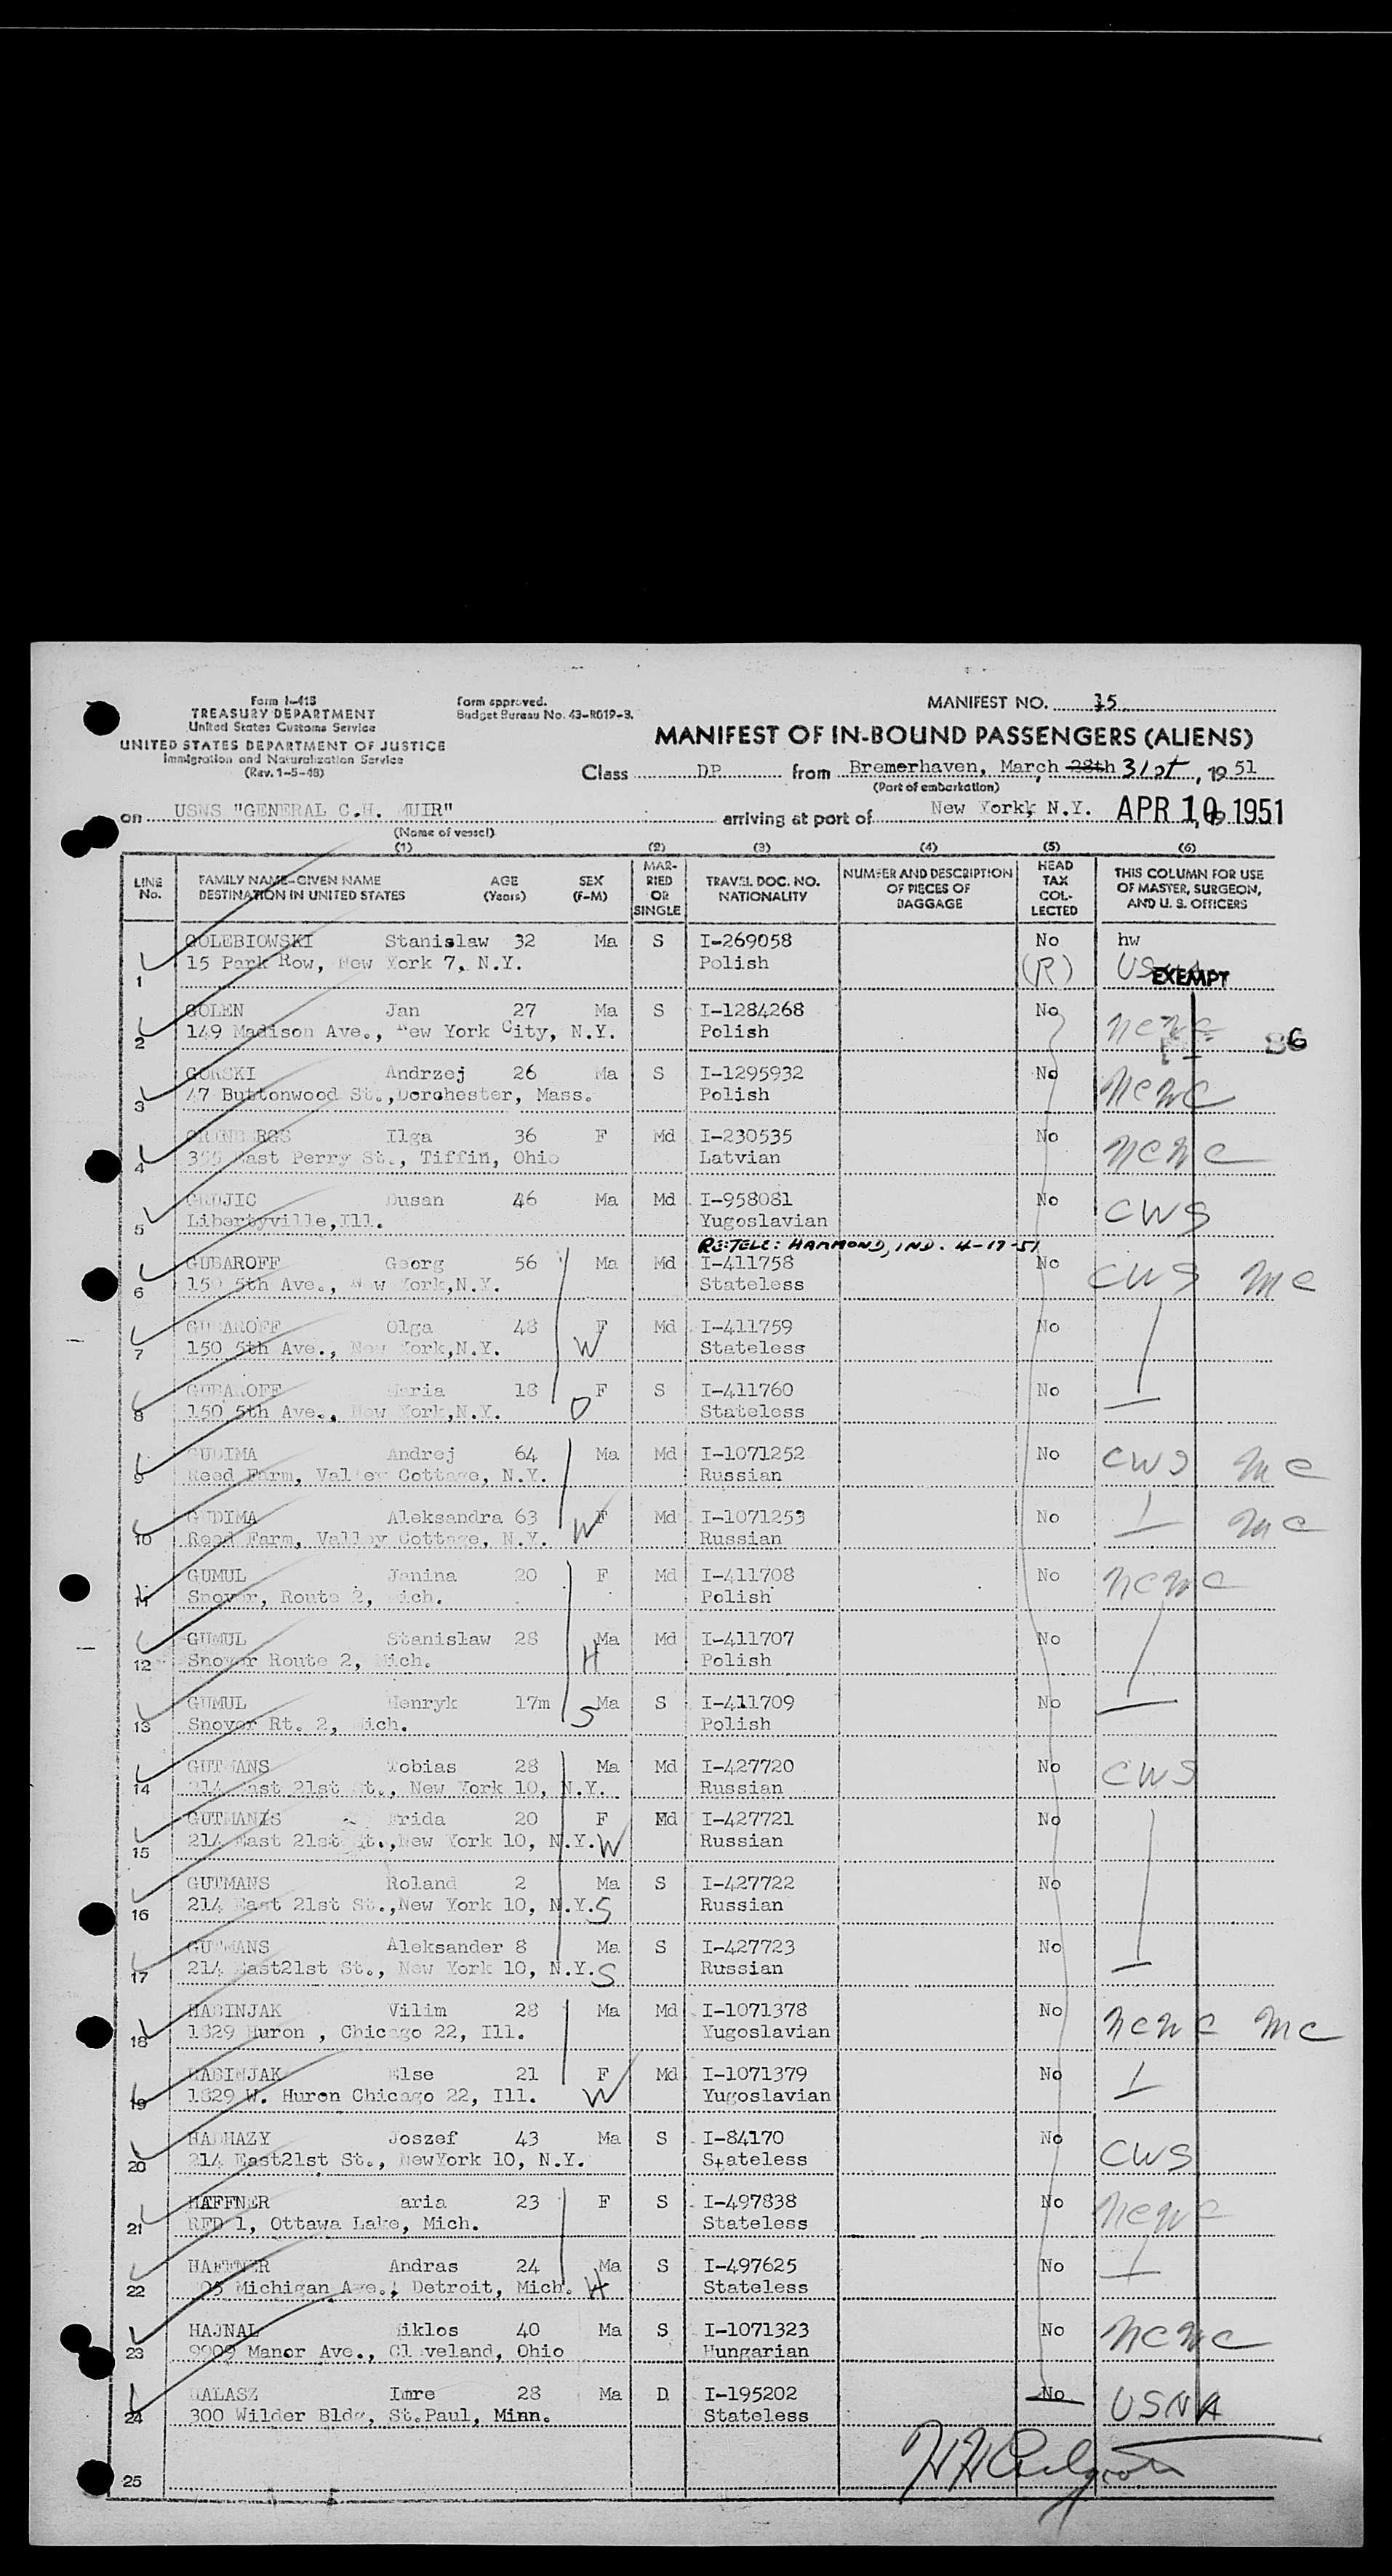 Form I-418
TREASURY DEPARTMENT
United States Customs Service
UNITED STATES DEPARTMENT OF JUSTICE
Immigration and Naturalization Service
(Rev. 1-5-48)
Form approved.
Budget Bureau No. 43-R019-3.
MANIFEST NO. 15
MANIFEST OF IN-BOUND PASSENGERS (ALIENS)
Class DP from Bremerhaven, March 28th 31st, 19 51
(Port of embarkation)
on USNS "GENERAL C.H. MUIR" arriving at port of New York, N.Y. APR 10 1951
(Name of vessel)
(1) (2) (3) (4) (5) (6)
LINE No. FAMILY NAME-GIVEN NAME DESTINATION IN UNITED STATES AGE (Years) SEX (F-M) MARRIED OR SINGLE TRAVEL DOC. NO. NATIONALITY NUMBER AND DESCRIPTION OF PIECES OF BAGGAGE HEAD TAX COLLECTED THIS COLUMN FOR USE OF MASTER, SURGEON, AND U. S. OFFICERS
1 GOLEBIOWSKI Stanislaw 32 Ma S I-269058 No hw
15 Park Row, New York 7, N.Y. Polish (R) EXEMPT
2 GOLEN Jan 27 Ma S I-1284268 No NCWC
149 Madison Ave., New York City, N.Y. Polish
3 GORSKI Andrzej 26 Ma S I-1295932 No NCWC
47 Buttonwood St., Dorchester, Mass. Polish
4 GRINBERGS Ilga 36 F Md I-230535 No NCWC
355 East Perry St., Tiffin, Ohio Latvian
5 GRUJIC Dusan 46 Ma Md I-958081 No CWS
Libertyville, Ill. Yugoslavian
RE:TELE: HAMMOND, IND. 4-17-51
6 GUBAROFF Georg 56 Ma Md I-411758 No CWS MC
150 5th Ave., New York, N.Y. Stateless
7 GUBAROFF Olga 48 F Md I-411759 No
150 5th Ave., New York, N.Y. W Stateless
8 GUBAROFF Maria 18 F S I-411760 No
150 5th Ave., New York, N.Y. D Stateless
9 GUDIMA Andrej 64 Ma Md I-1071252 No CWS MC
Reed Farm, Valley Cottage, N.Y. Russian
10 GUDIMA Aleksandra 63 F Md I-1071253 No MC
Reed Farm, Valley Cottage, N.Y. W Russian
11 GUMUL Janina 20 F Md I-411708 No NCWC
Snover, Route 2, Mich. Polish
12 GUMUL Stanislaw 28 Ma Md I-411707 No
Snover Route 2, Mich. H Polish
13 GUMUL Henryk 17m Ma S I-411709 No
Snover Rt. 2, Mich. S Polish
14 GUTMANS Tobias 28 Ma Md I-427720 No CWS
214 East 21st St., New York 10, N.Y. Russian
15 GUTMANIS Frida 20 F Md I-427721 No
214 East 21st St., New York 10, N.Y. W Russian
16 GUTMANS Roland 2 Ma S I-427722 No
214 East 21st St., New York 10, N.Y. S Russian
17 GUTMANS Aleksander 8 Ma S I-427723 No
214 East21st St., New York 10, N.Y. S Russian
18 HABINJAK Vilim 28 Ma Md I-1071378 No NCWC MC
1829 Huron, Chicago 22, Ill. Yugoslavian
19 HABINJAK Else 21 F Md I-1071379 No
1829 W. Huron Chicago 22, Ill. W Yugoslavian
20 HADHAZY Joszef 43 Ma S I-84170 No CWS
214 East21st St., NewYork 10, N.Y. Stateless
21 HAFFNER aria 23 F S I-497838 No NCWC
RFD 1, Ottawa Lake, Mich. Stateless
22 HAFFNER Andras 24 Ma S I-497625 No
Michigan Ave., Detroit, Mich. H Stateless
23 HAJNAL Miklos 40 Ma S I-1071323 No NCWC
9909 Manor Ave., Cleveland, Ohio Hungarian
24 HALASZ Imre 28 Ma D I-195202 No USNA
300 Wilder Bldg, St.Paul, Minn. Stateless
25